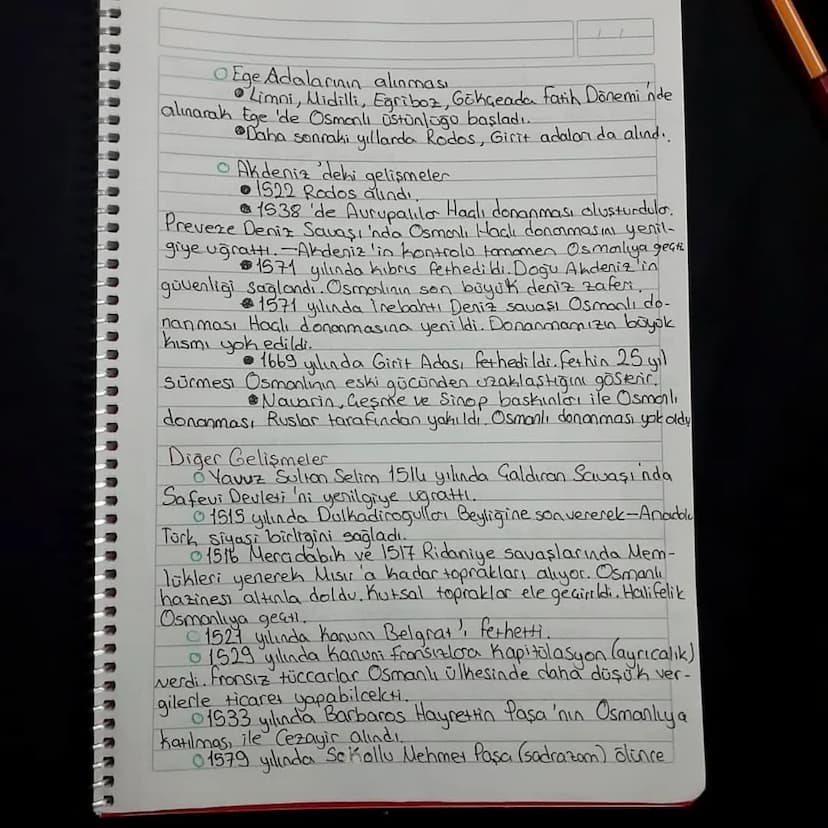 Ege Adalarının alınması
Limni, Midilli, Eğriboz, Gökçeada Fatih Dönemi'nde
alınarak Ege'de Osmanlı üstünlüğü başladı.
Daha sonraki yıllarda Rodos, Girit adaları da alındı.
Akdeniz'deki gelişmeler
1522 Rodos alındı.
1538'de Avrupalılar Haçlı donanması oluşturdular.
Preveze Deniz Savaşı'nda Osmanlı Haçlı donanmasını yenil-
giye uğrattı. – Akdeniz'in kontrolü tamamen Osmanlıya geçti
1571 yılında Kıbrıs fethedildi. Doğu Akdeniz'in
güvenliği sağlandı. Osmanlının son büyük deniz zaferi.
1571 yılında İnebahtı Deniz savaşı Osmanlı do-
nanması Haçlı donanmasına yenildi. Donanmamızın büyük
kısmı yok edildi.
1669 yılında Girit Adası fethedildi. Fethin 25 yıl
sürmesi Osmanlının eski gücünden uzaklaştığını gösterir.
Navarin, Çeşme ve Sinop baskınları ile Osmanlı
donanması Ruslar tarafından yakıldı. Osmanlı donanması yok oldu
Diğer Gelişmeler
Yavuz Sultan Selim 1514 yılında Çaldıran Savaşı'nda
Safevi Devleti'ni yenilgiye uğrattı.
1515 yılında Dulkadiroğulları Beyliğine son vererek – Anadolu
Türk siyasi birliğini sağladı.
1516 Mercidabık ve 1517 Ridaniye savaşlarında Mem-
lükleri yenerek Mısır'a kadar toprakları alıyor. Osmanlı
hazinesi altınla doldu. Kutsal topraklar ele geçirildi. Halifelik
Osmanlıya geçti.
1521 yılında Kanuni Belgrat'ı fethetti.
1529 yılında Kanuni Fransızlara Kapitülasyon (ayrıcalık)
verdi. Fransız tüccarlar Osmanlı ülkesinde daha düşük ver-
gilerle ticaret yapabilcekti.
1533 yılında Barbaros Hayrettin Paşa'nın Osmanlıya
katılması ile Cezayir alındı.
1579 yılında Sokollu Mehmet Paşa (sadrazam) ölünce